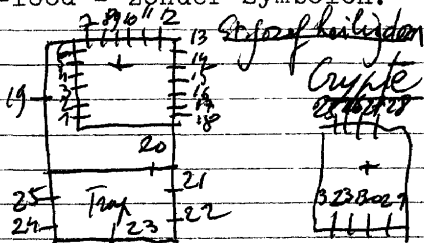 -lood - zonder symbolen.
7 8 9 10 11 12 13
St Jozef heiligdom
6
5
4
3
2
1
14
15
16
17
18
19
20
21
22
23
24
25
Trap
Crypte
28
29